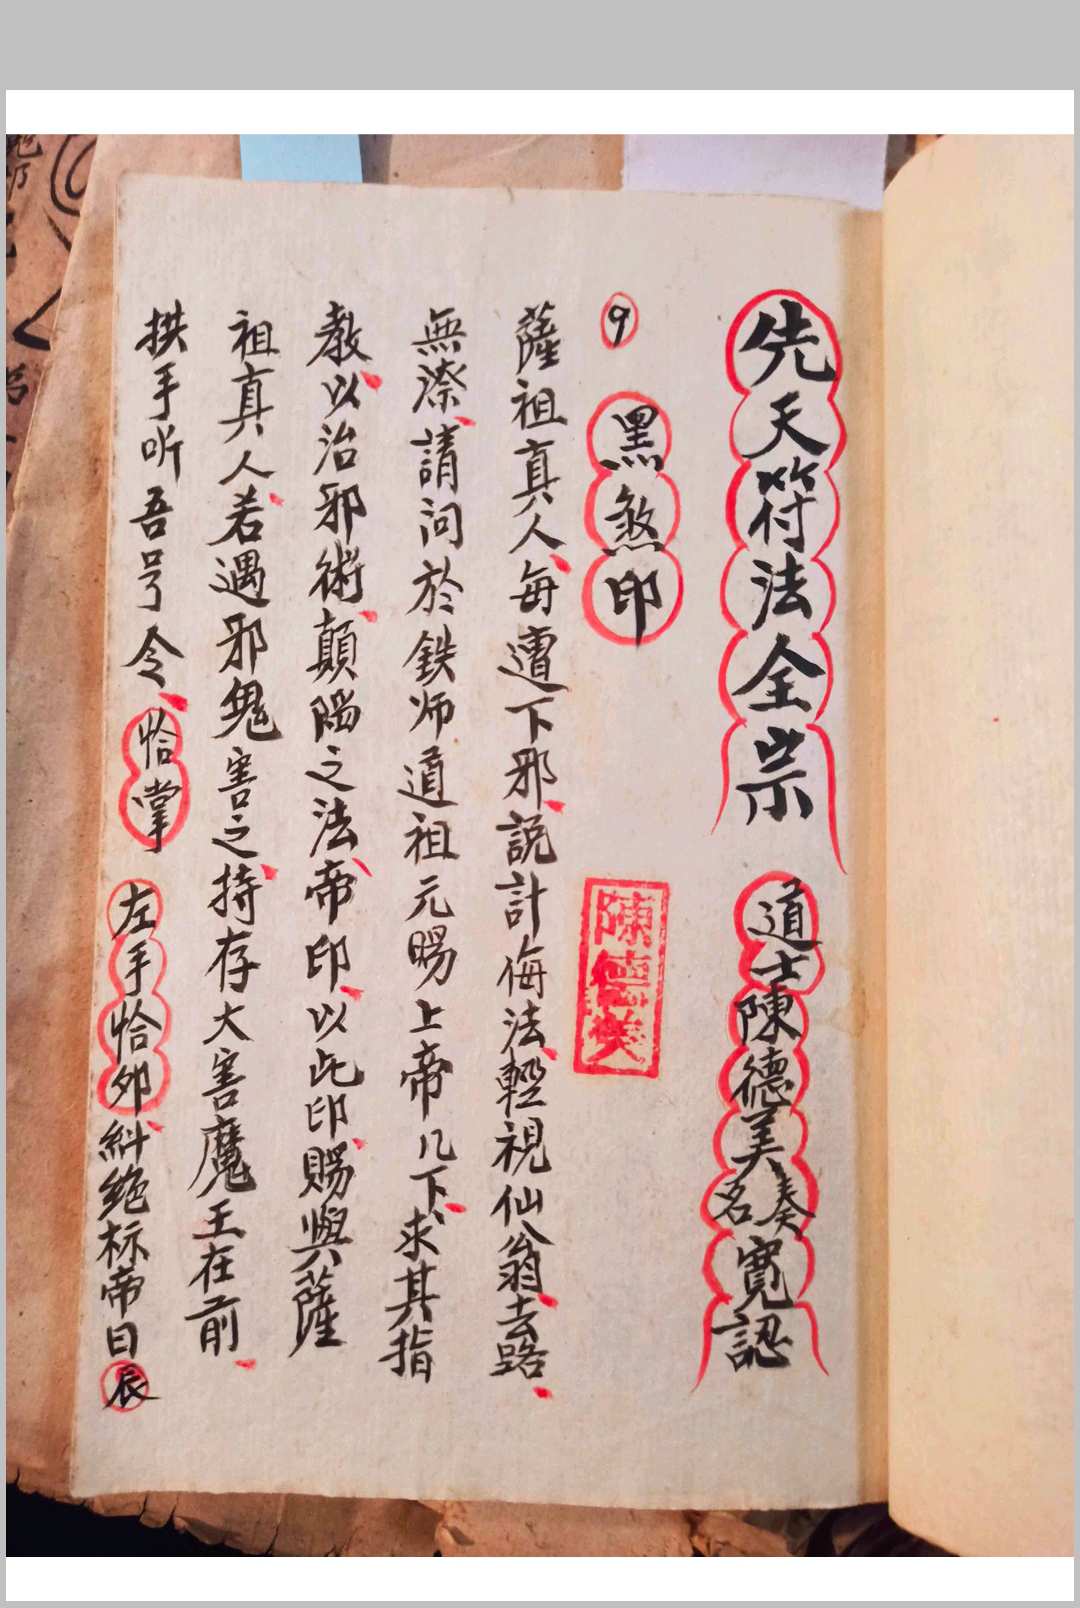 先天符法全宗 道士陳德美奏名寬認
9 黑煞印
陳德美
薩祖真人每遭下邪說計侮法輕視仙翁去路
無漈請问於鉄师道祖元賜上帝几下求其指
教以治邪術顛陽之法帝印以此印賜與薩
祖真人若遇邪鬼害之持存大害魔王在前
拱手听吾号令恰掌 左手恰卯糾绝标帝日辰